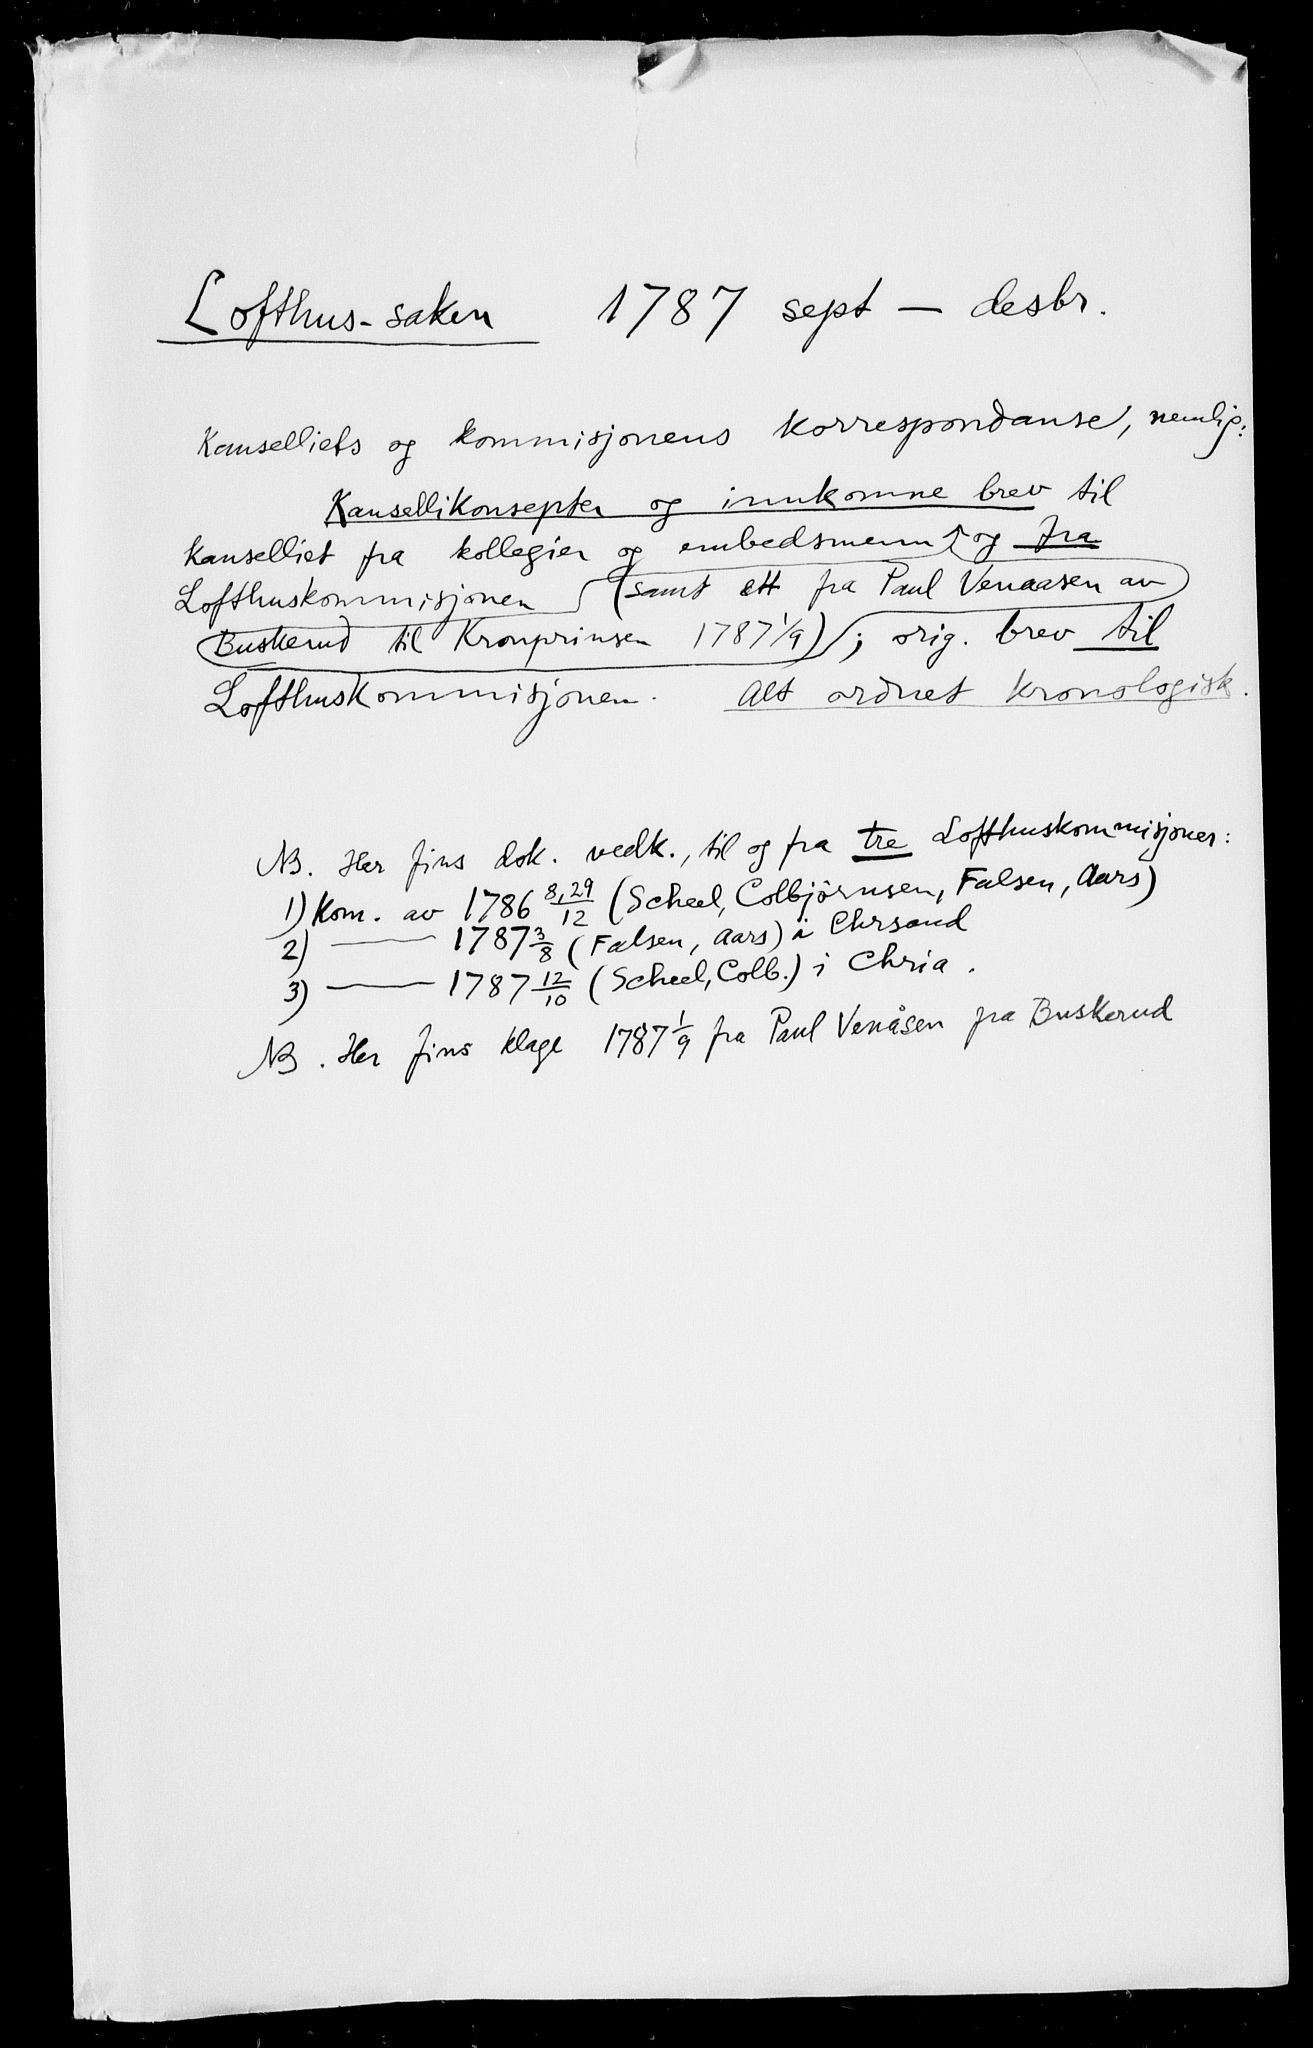 Lofthus-saken 1787 sept – desbr.
Kanselliets og kommisjonens korrespondanse, nemlig:
Kansellikonsepter og innkomne brev til
kanselliet fra kollegier og embedsmenn og fra
Lofthuskommisjonen (samt ett fra Paul Venaasen av
Buskerud til Kronprinsen 1787 1/9); orig. brev til
Lofthuskommisjonen. Alt ordnet kronologisk.
NB. Her fins dok. vedk., til og fra tre Lofthuskommisjoner:
1) Kom. av 1786 8,29/12 (Scheel, Colbjörnsen, Falsen, Aars)
2) —— 1787 3/8 (Falsen, Aars) i Chrsand
3) —— 1787 12/10 (Scheel, Colb.) i Chria.
NB. Her fins klage 1787 1/9 fra Paul Venåsen fra Buskerud